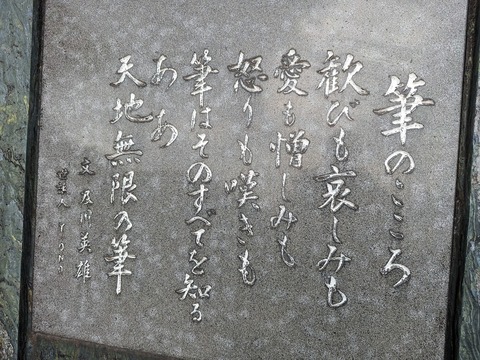 筆のこころ
歓びも哀しみも
愛も憎しみも
怒りも嘆きも
筆はそのすべてを知る
ああ
天地無限の筆
文 尾川英雄